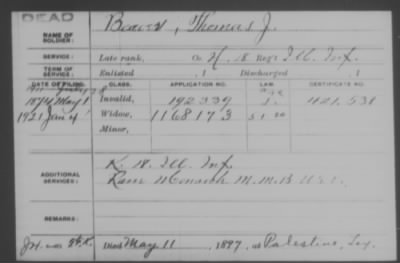 DEAD
NAME OF SOLDIER: Beaver, Thomas J.
SERVICE: Late rank, Co. H, 18 Reg't Ill. Inf.
TERM OF SERVICE: Enlisted , 1 Discharged , 1
DATE OF FILING. CLASS. APPLICATION NO. LAW. CERTIFICATE NO.
1874 May 1 Invalid, 192339 421.531
1921 Jan 4 Widow, 1168173
Minor,
ADDITIONAL SERVICES: K. 18. Ill. Inf.
Ram Monarch M.M.B. U.S.V.
REMARKS:
Died May 11, 1897, at Palestine, Tex.